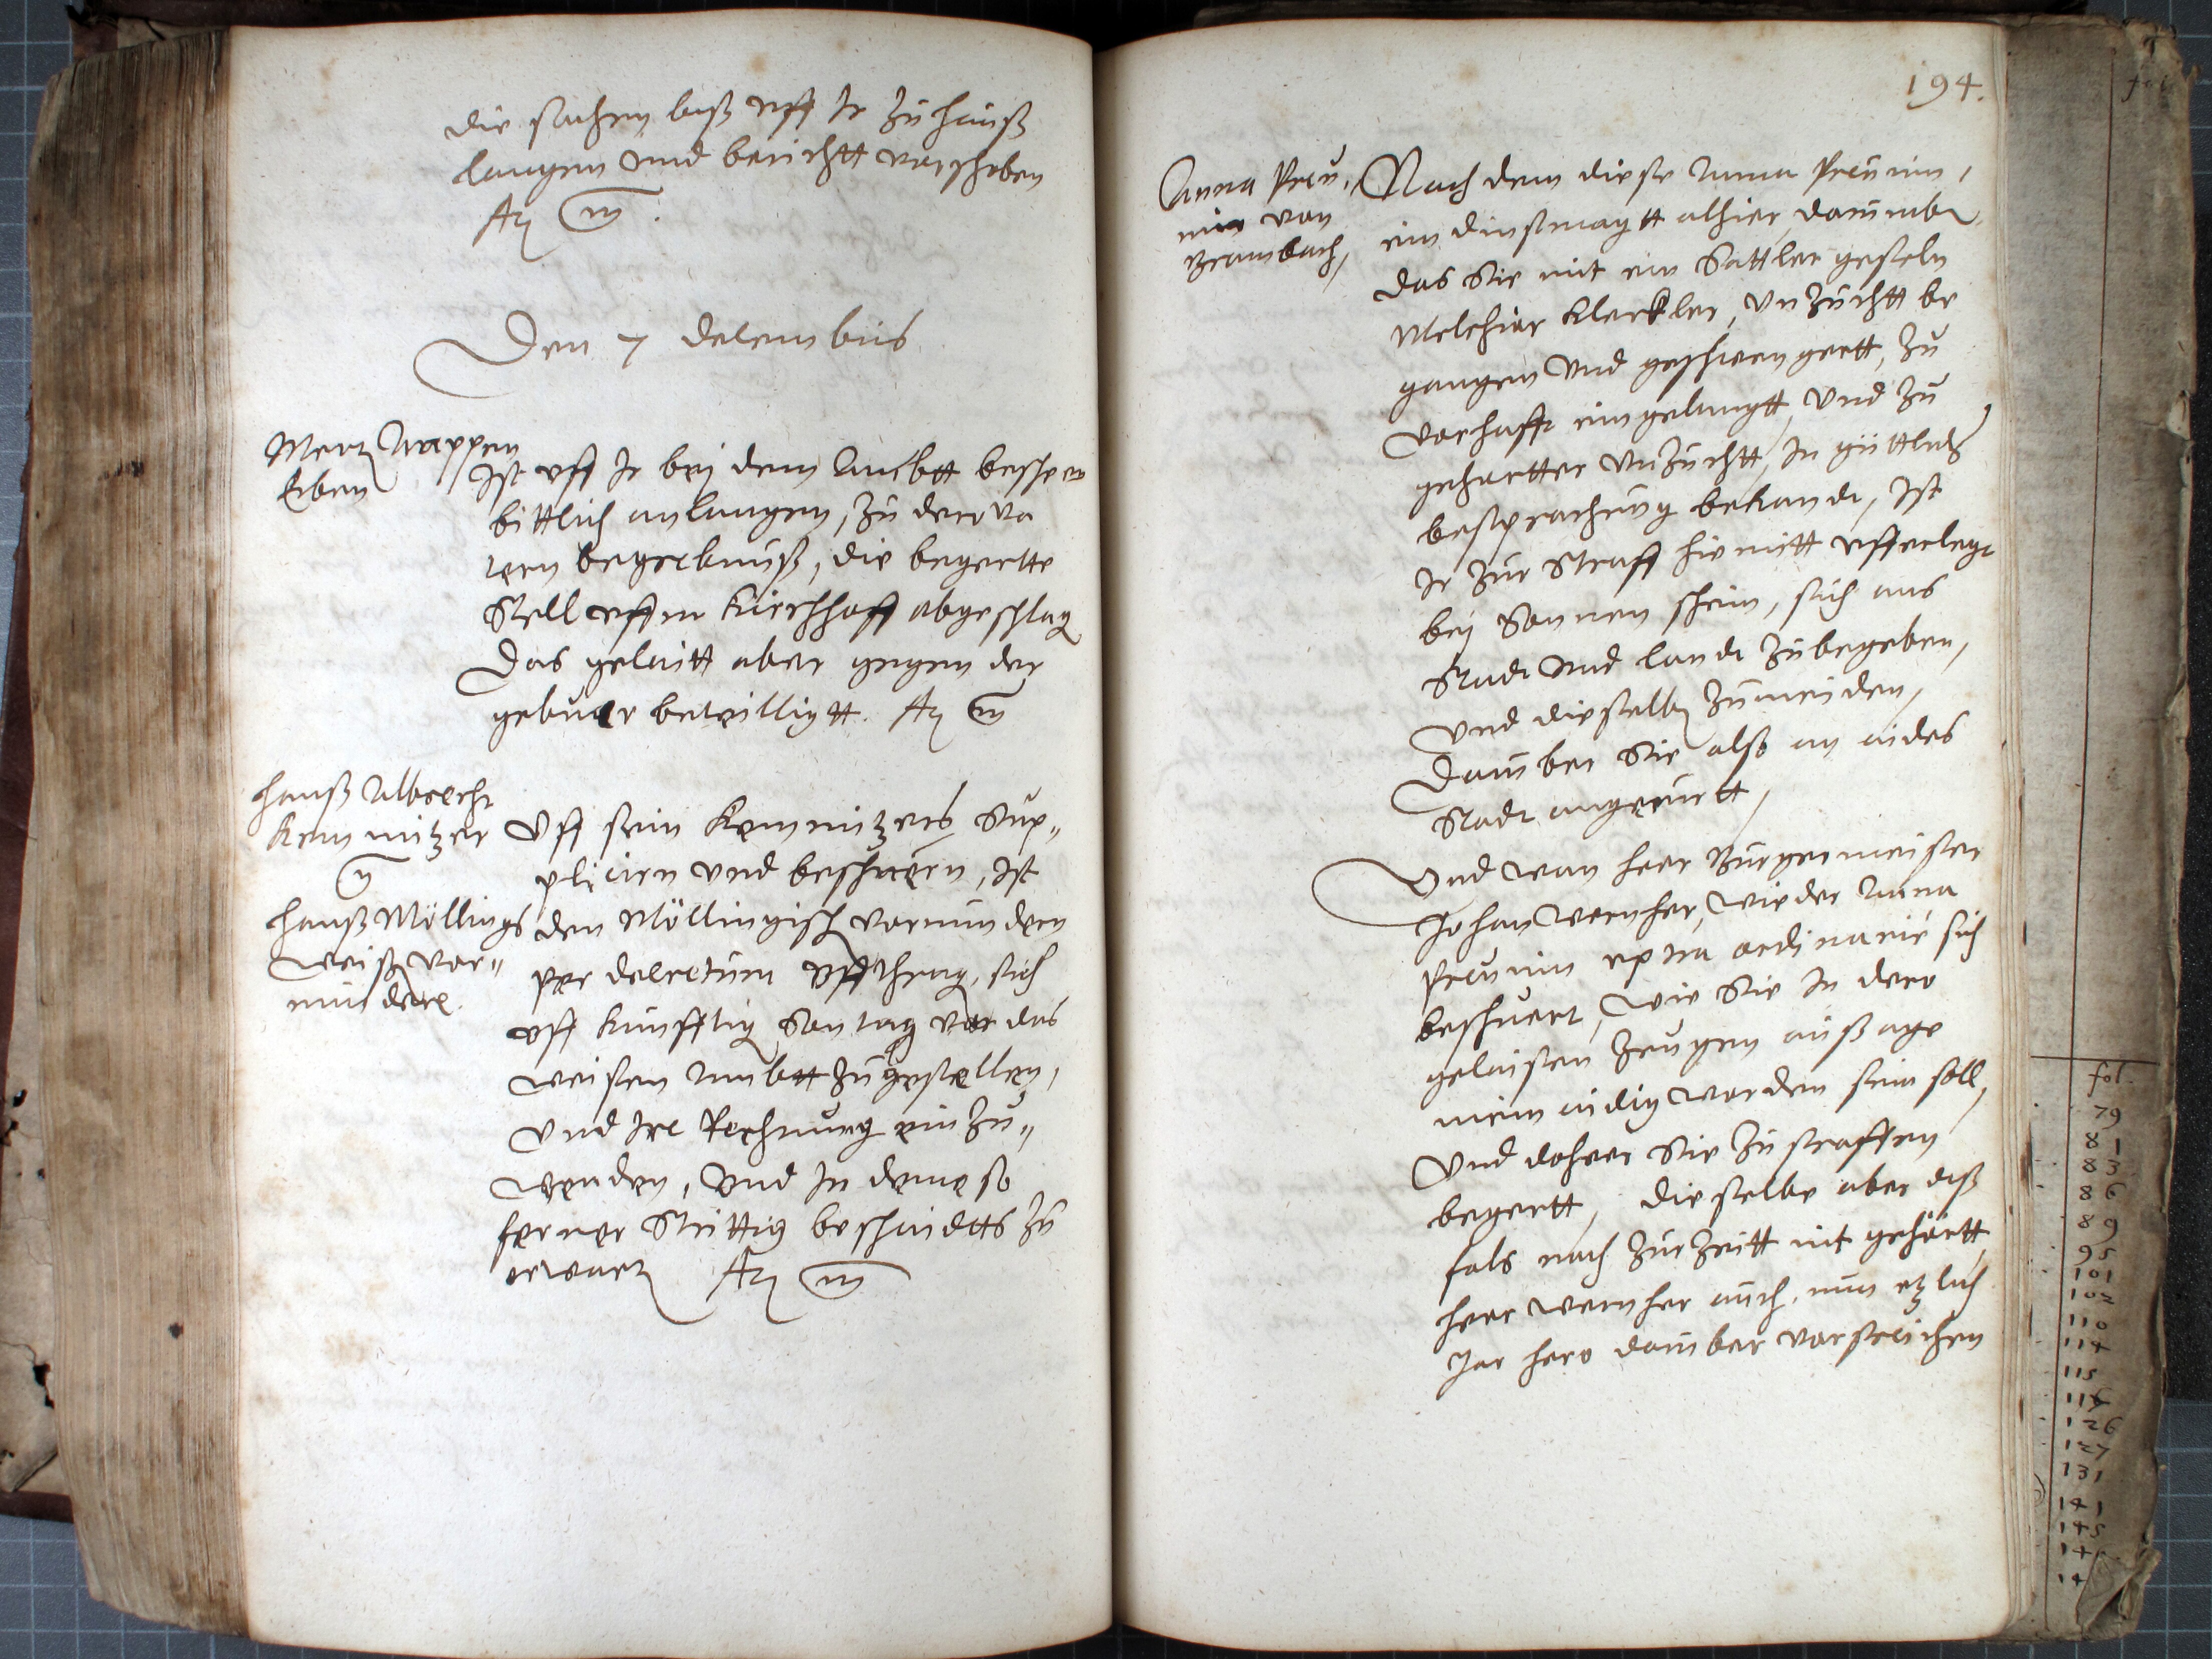 die sachen biß uff Ir zu hauß
langen und berichtt verschoben
Az m
Den 7 Decembris
Mertz Trappen
Erben
Ist uff Ir bej dem Ambtt beschen
bittlich anlangen, zu dero va
tern begrebnuß, die begertte
Stell uffm Kirchhoff abgeschlag
Das gelaitt aber gegen der
gebuer bewilligtt. Az m
Hanß Albrecht
Kemnitzer
Hanß Möllings
Weiß. vor„
mundere.
Uff sein Kemnitzers, Sup„
plicirn und beschwern, Ist
den Möllingisch vormundern
per decretum ufftherag, sich
uff kunfftig Sontag vor das
weisen Ambtt zugestellen,
Und Ire Rechnung ein zu„
wenden, Und In deme so
ferner Stuttig beschaidtts zu
erwartz Az m
194.
Anna
von
Brambach,
Nach dem diese Anna
ein dinstmagtt alhier, darumb
das Sie mit ein Sattler geseln
Melchior Kleckler, Unzuchtt be
gangen Und geschwengertt, zu
vorhafft eingelangtt, Und zu
gehortter Unzuchtt, In güttlich
besprachung bekandt, Ist
Ir zur Straff hiemitt ufferlegt
bej Sonnen schein, sich aus
Stadt und landt zubegeben,
Und dieselb zumeiden,
Darüber Sie also an aides
Stadt angerurtt,
Und wan herr Burgermeister
Johan Wernher, wieder Anna
extra ordinarie sich
beschwert, wie Sie In dero
gelaisten Zeugen aussage
mein aidig worden sein soll,
Und dahero Sie zu straffen
begertt, dieselbe aber diß
fals noch zur Zeitt nit gehörtt
herr Wernher auch, nun etzlich
Jar hero darüber vorstreichen
fol
fol.
79
81
83
86
89
95
101
102
110
114
115
116
126
127
131
141
145
14
14